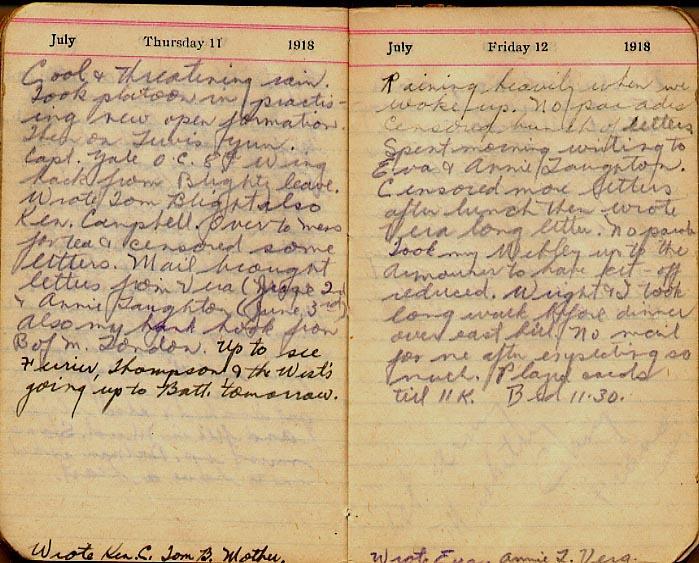 July Thursday 11 1918
Cool & threatening rain.
Took platoon in practis-
ing new open formation.
Then on Lewis gun.
Capt. Yale O.C. E & F Wing
back from Blighty leave.
Wrote Tom Blight also
Ken. Campbell. Over to mess
for tea & censored some
letters. Mail brought
letters from Vera (June 2nd
& Annie Laughton (June 3rd)
also my bank book from
B of M. London. Up to see
Furier, Thompson & the West's
going up to Batt. tomorrow.
Wrote Ken. C. Tom B. Mother.
July Friday 12 1918
Raining heavily when we
woke up. No parades
Censored bunch of letters
Spent morning writing to
Eva & Annie Laughton.
Censored more letters
after lunch then wrote
Vera long letter. No parade
Took my Webley up to the
armourer to have
reduced. Wright & I took
long walk before dinner
over east hill. No mail
for me after expecting so
much. Played cards
till 11 K. Bed 11.30.
Wrote Eva. Annie L. Vera.